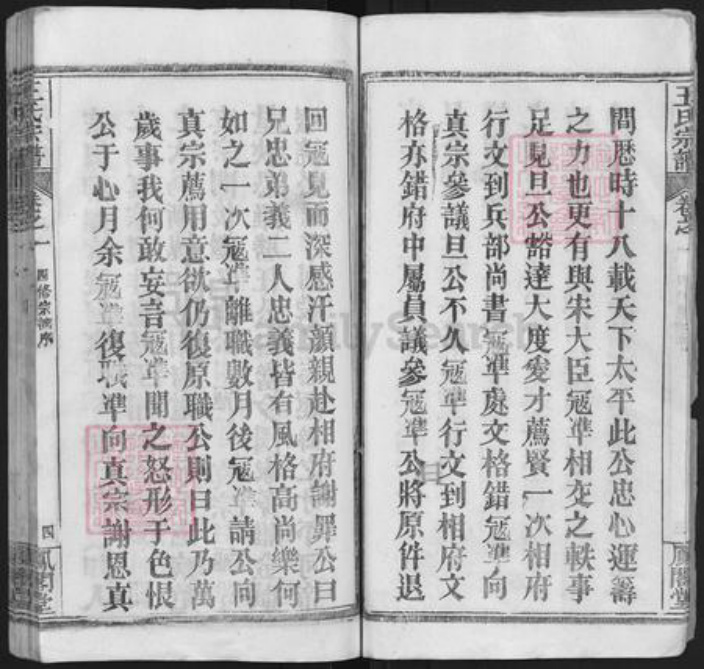 王氏宗譜
卷之一
鳳閣堂
間歷時十八載天下太平此公忠心運籌
之力也更有與宋大臣寇準相交之軼事
足見旦公豁達大度愛才薦賢一次相府
行文到兵部尚書寇準處文格錯寇準向
真宗參議旦公不久寇準行文到相府文
格亦錯府中屬員議參寇準公將原件退
回寇見而深感汗顏親赴相府謝罪公曰
兄忠弟義二人忠義皆有風格高尚樂何
如之一次寇準離職數月後寇準請公向
真宗薦用意欲仍復原職公則曰此乃萬
歲事我何敢妄言寇準聞之怒形于色恨
公于心月余寇準復職準向真宗謝恩真
王氏宗譜
卷之一
四修宗譜序
四
鳳閣堂
FamilySearch